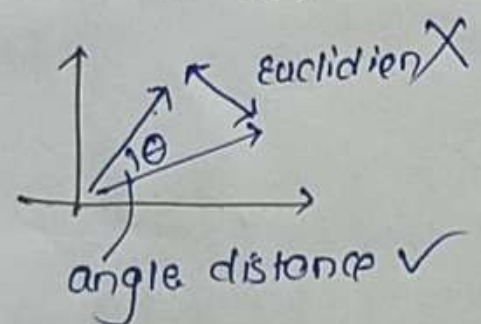 euclidien X
θ
angle distance ✓